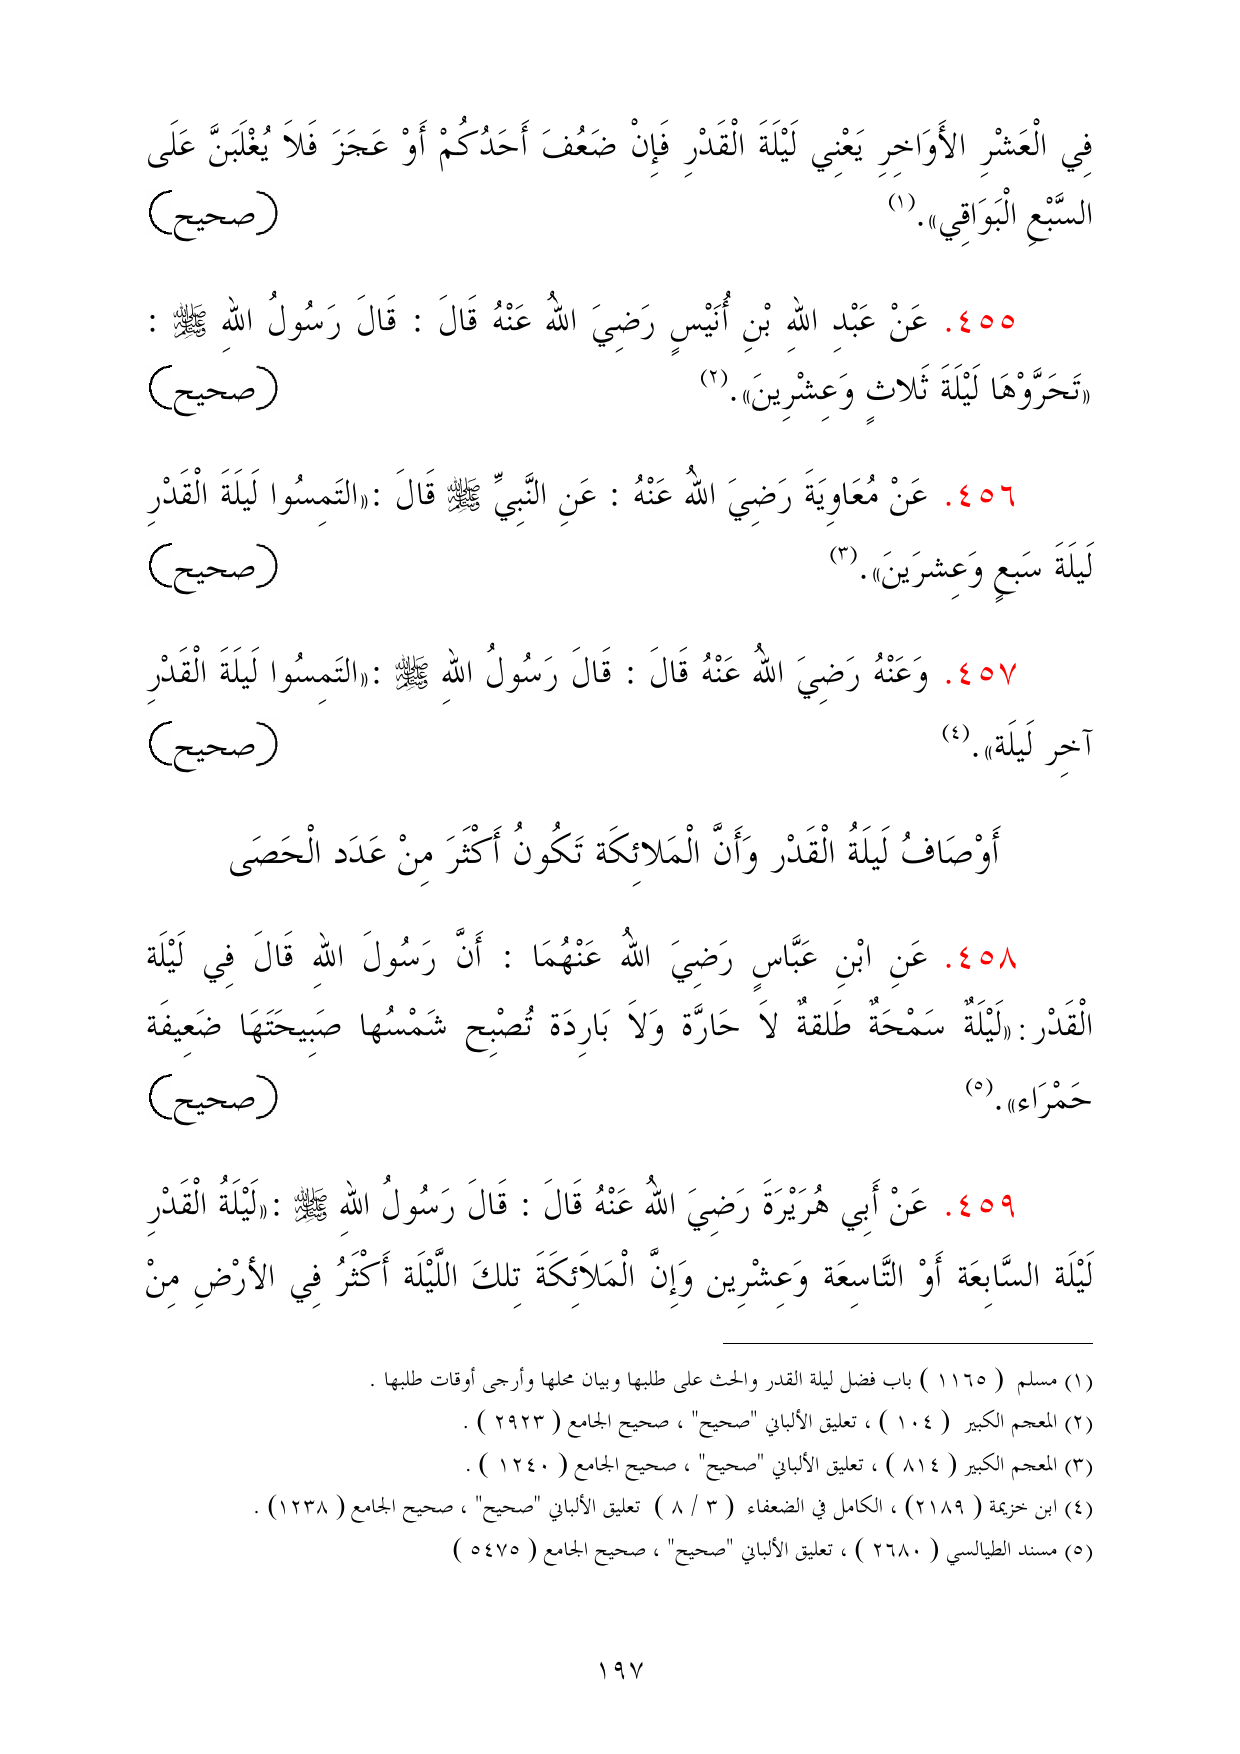 فِي الْعَشْرِ الأَوَاخِرِ يَعْنِي لَيْلَةَ الْقَدْرِ فَإِنْ ضَعُفَ أَحَدُكُمْ أَوْ عَجَزَ فَلاَ يُغْلَبَنَّ عَلَى
السَّبْعِ الْبَوَاقِي». (١) (صحيح)
٤٥٥. عَنْ عَبْدِ اللهِ بْنِ أُنَيْسٍ رَضِيَ اللهُ عَنْهُ قَالَ : قَالَ رَسُولُ اللهِ ﷺ :
«تَحَرَّوْهَا لَيْلَةَ ثَلاثٍ وَعِشْرِينَ». (٢) (صحيح)
٤٥٦. عَنْ مُعَاوِيَةَ رَضِيَ اللهُ عَنْهُ : عَنِ النَّبِيِّ ﷺ قَالَ :«التَمِسُوا لَيلَةَ الْقَدْرِ
لَيلَةَ سَبعٍ وَعِشرَينَ». (٣) (صحيح)
٤٥٧. وَعَنْهُ رَضِيَ اللهُ عَنْهُ قَالَ : قَالَ رَسُولُ اللهِ ﷺ :«التَمِسُوا لَيلَةَ الْقَدْرِ
آخِر لَيلَة». (٤) (صحيح)
أَوْصَافُ لَيلَةُ الْقَدْر وَأَنَّ الْمَلائِكَة تَكُونُ أَكْثَرَ مِنْ عَدَد الْحَصَى
٤٥٨. عَنِ ابْنِ عَبَّاسٍ رَضِيَ اللهُ عَنْهُمَا : أَنَّ رَسُولَ اللهِ قَالَ فِي لَيْلَة
الْقَدْر :«لَيْلَةٌ سَمْحَةٌ طَلقةٌ لاَ حَارَّة وَلاَ بَارِدَة تُصْبِح شَمْسُها صَبِيحَتَهَا ضَعِيفَة
حَمْرَاء». (٥) (صحيح)
٤٥٩. عَنْ أَبِي هُرَيْرَةَ رَضِيَ اللهُ عَنْهُ قَالَ : قَالَ رَسُولُ اللهِ ﷺ :«لَيْلَةُ الْقَدْرِ
لَيْلَة السَّابِعَة أَوْ التَّاسِعَة وَعِشْرِين وَإِنَّ الْمَلاَئِكَةَ تِلكَ اللَّيْلَة أَكْثَرُ فِي الأرْضِ مِنْ
(١) مسلم ( ١١٦٥ ) باب فضل ليلة القدر والحث على طلبها وبيان محلها وأرجى أوقات طلبها .
(٢) المعجم الكبير ( ١٠٤ ) ، تعليق الألباني "صحيح" ، صحيح الجامع ( ٢٩٢٣ ) .
(٣) المعجم الكبير ( ٨١٤ ) ، تعليق الألباني "صحيح" ، صحيح الجامع ( ١٢٤٠ ) .
(٤) ابن خزيمة ( ٢١٨٩) ، الكامل في الضعفاء ( ٣ / ٨ ) تعليق الألباني "صحيح" ، صحيح الجامع ( ١٢٣٨) .
(٥) مسند الطيالسي ( ٢٦٨٠ ) ، تعليق الألباني "صحيح" ، صحيح الجامع ( ٥٤٧٥ )
١٩٧